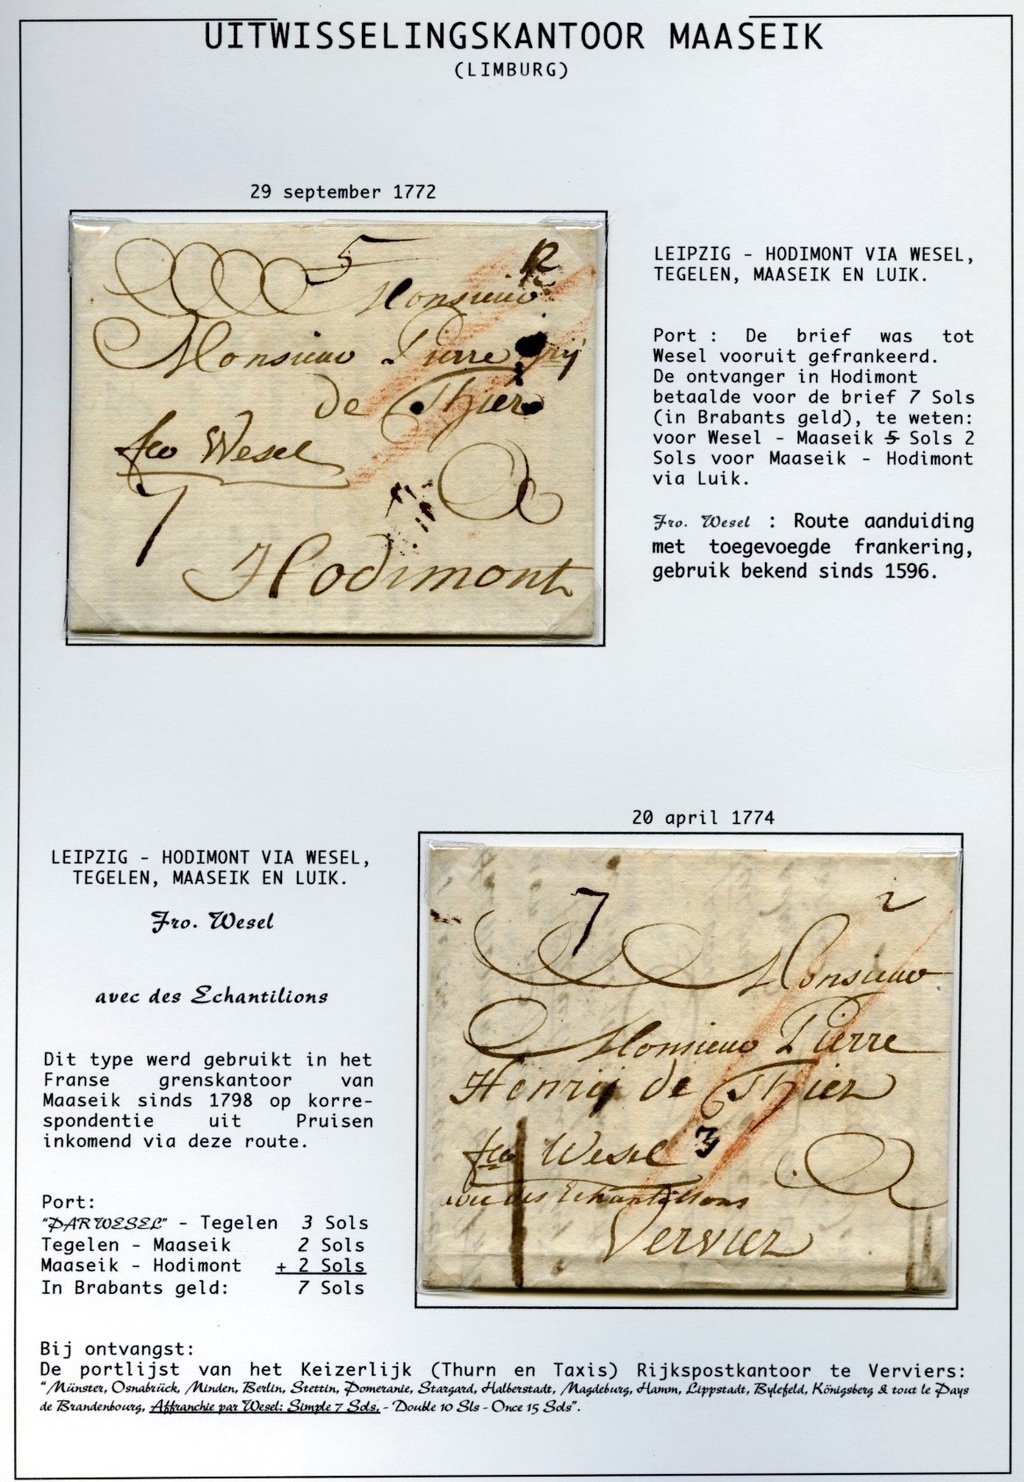 UITWISSELINGSKANTOOR MAASEIK
(LIMBURG)
29 september 1772
5
12
Monsieur
Monsieur Pierre
De Thier
fco Wesel
7
Hodimont
LEIPZIG - HODIMONT VIA WESEL,
TEGELEN, MAASEIK EN LUIK.
Port : De brief was tot
Wesel vooruit gefrankeerd.
De ontvanger in Hodimont
betaalde voor de brief 7 Sols
(in Brabants geld), te weten:
voor Wesel - Maaseik 5 Sols 2
Sols voor Maaseik - Hodimont
via Luik.
Fro. Wesel : Route aanduiding
met toegevoegde frankering,
gebruik bekend sinds 1596.
LEIPZIG - HODIMONT VIA WESEL,
TEGELEN, MAASEIK EN LUIK.
Fro. Wesel
avec des Echantilions
Dit type werd gebruikt in het
Franse grenskantoor van
Maaseik sinds 1798 op korre-
spondentie uit Pruisen
inkomend via deze route.
Port:
"PAR WESEL" - Tegelen 3 Sols
Tegelen - Maaseik 2 Sols
Maaseik - Hodimont + 2 Sols
In Brabants geld: 7 Sols
20 april 1774
7
2
Monsieur
Monsieur Pierre
Henrij de Thier
fco Wesel 3
avec des Echantillons
Vervier
Bij ontvangst:
De portlijst van het Keizerlijk (Thurn en Taxis) Rijkspostkantoor te Verviers:
"Münster, Osnabrück, Minden, Berlin, Stettin, Pomeranie, Stargard, Halberstadt, Magdeburg, Hamm, Lippstadt, Bylefeld, Königsberg & tout le Pays
de Brandenbourg, Affranchie par Wesel: Simple 7 Sols, - Double 10 Sls - Once 15 Sols".